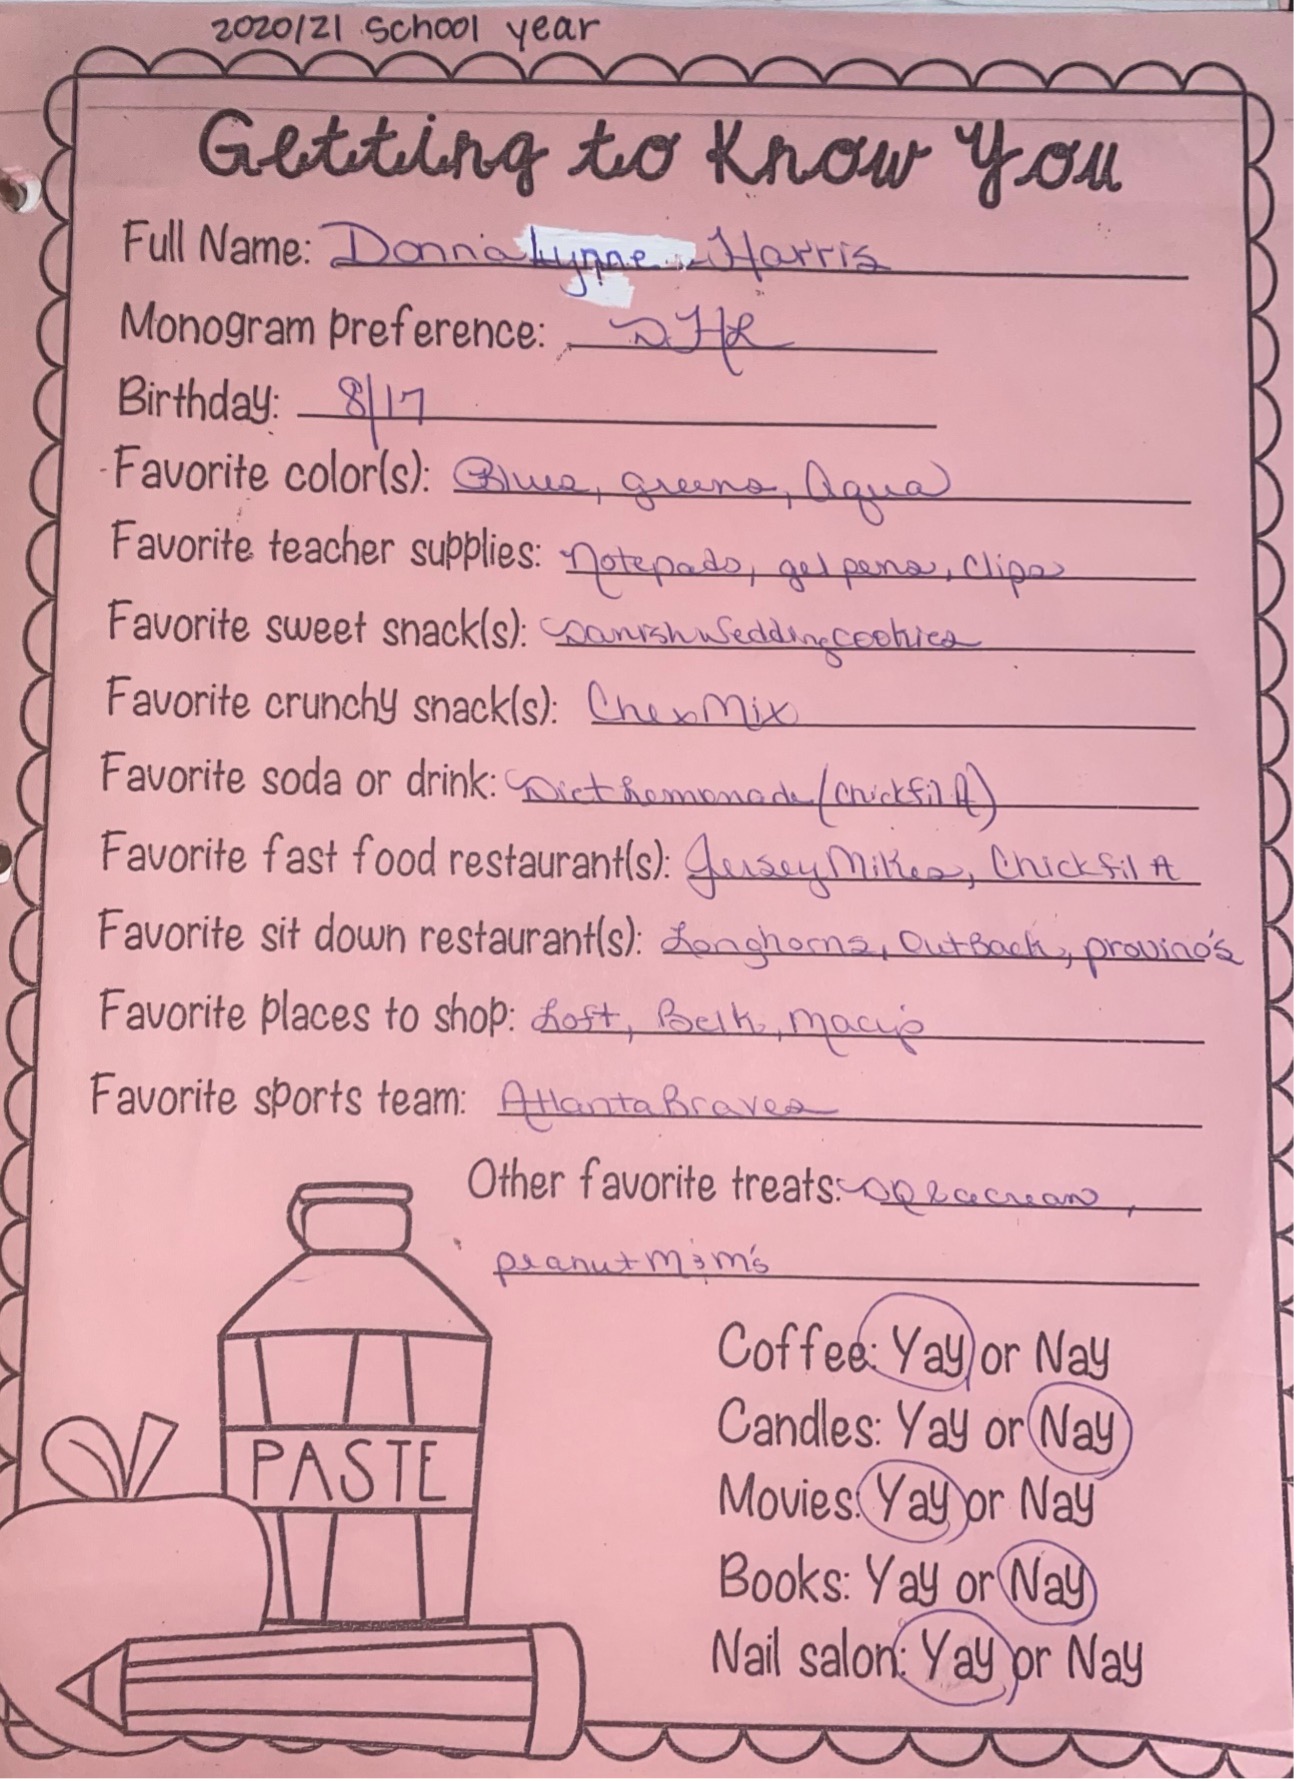 2020/21 school year
Getting to Know You
Full Name: Donna Lynne Harris
Monogram preference: DHL
Birthday: 8/17
Favorite color(s): Blues, greens, Aqua
Favorite teacher supplies: Notepads, gel pens, Clips
Favorite sweet snack(s): Danish Wedding Cookies
Favorite crunchy snack(s): Chex Mix
Favorite soda or drink: Diet Lemonade (Chick fil A)
Favorite fast food restaurant(s): Jersey Mikes, Chick fil A
Favorite sit down restaurant(s): Longhorns, OutBack, provino's
Favorite places to shop: Loft, Belk, Macy's
Favorite sports team: Atlanta Braves
Other favorite treats: DQ Icecream,
peanut M&M's
Coffee: Yay or Nay
Candles: Yay or Nay
PASTE
Movies: Yay or Nay
Books: Yay or Nay
Nail salon: Yay or Nay